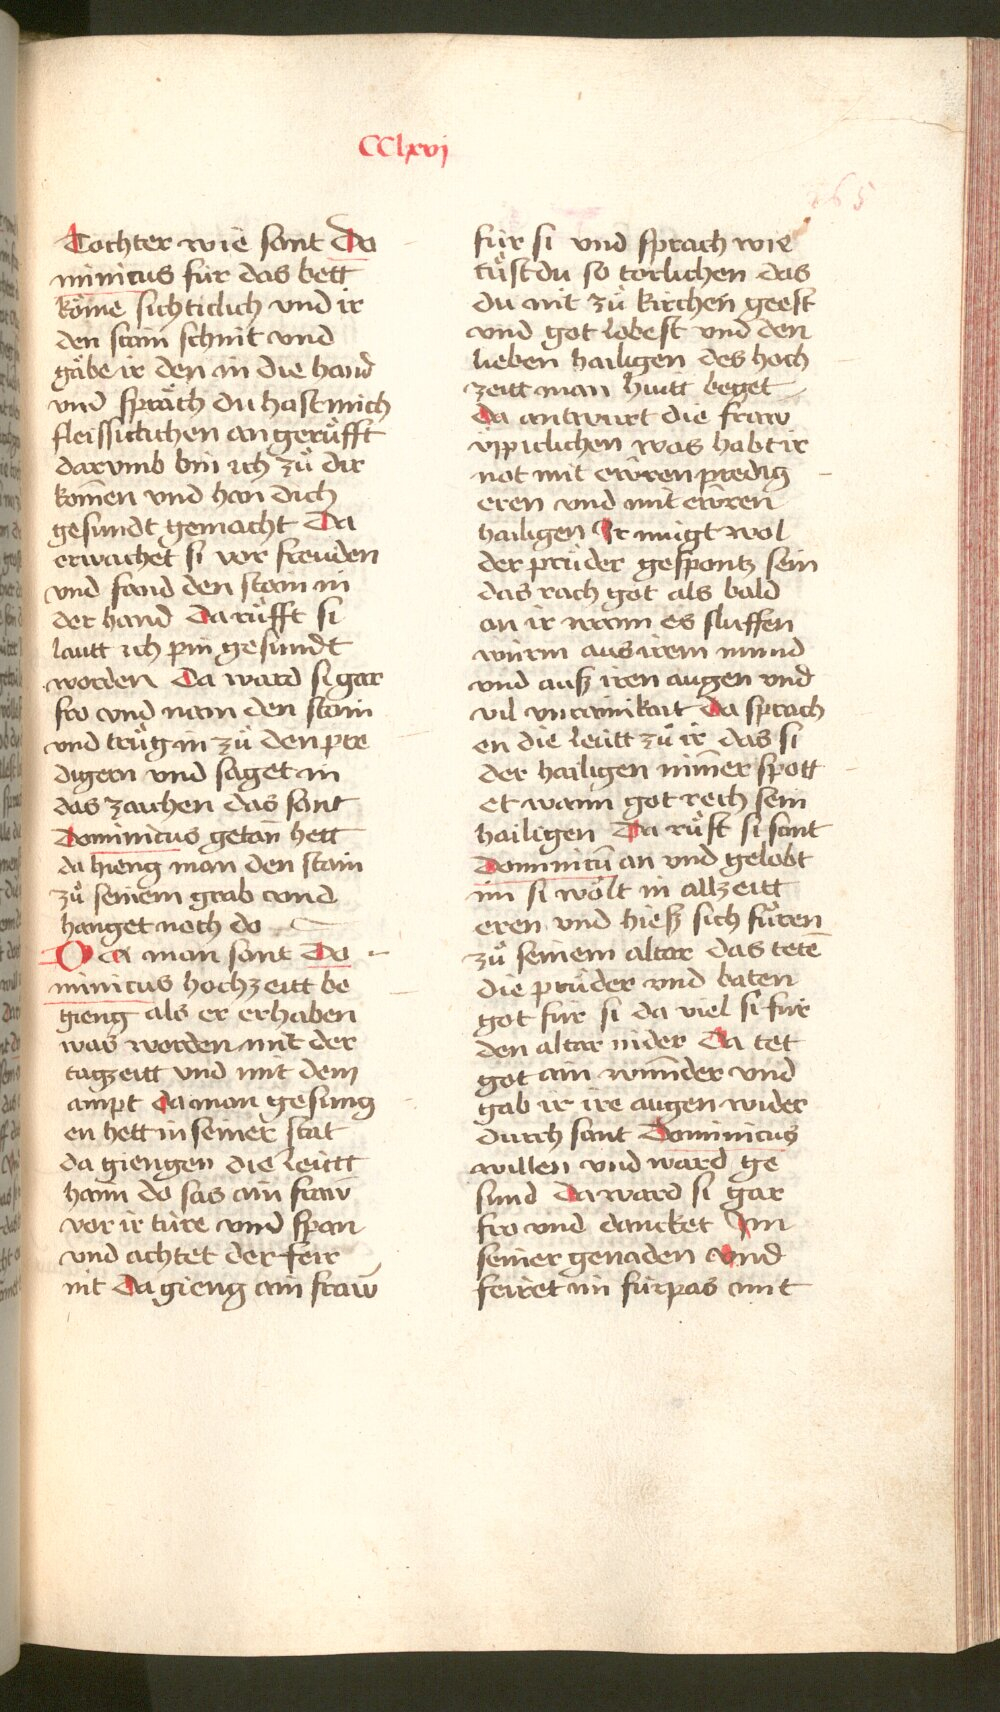 CClxvj
265
Tochter wie sant Do
minicus für das bett
köme sichticlich vnd ir
den stain schnit vnd
gäbe ir den in die hand
vnd spräch du hast mich
fleissiclichen an gerüfft
darvmb bin ich zů dir
komen vnd han dich
gesundt gemacht Da
erwachet si vor freuden
vnd fand den stain in
der hand Da rüfft si
lautt ich pin gesundt
worden Da ward si gar
fro vnd nam den stain
vnd trůg in zů den pre
digern vnd saget in
das zaichen das sant
Dominicus getan hett
da hieng man den stain
zů seinem grab vnd
hanget noch do
Da man sant Do
minicus hochzeitt be
gieng als er erhaben
was worden mit der
tagzeitt vnd mit dem
ampt Da man gesung
en hett in seiner stat
da giengen die leutt
haim do sas ain fraw
vor ir türe vnd span
vnd achtet der feir
nit Da gieng ain fraw
für si vnd sprach wie
tüst du so torlichen das
du nit zů kirchen geest
vnd got lobest vnd den
lieben hailigen des hoch
zeitt man hwtt beget
Da antwurt die fraw
üppiclichen was habt ir
not mit ewren predig
eren vnd mit ewren
hailigen Ir mügt wol
der prüder gespontz sein
das rach got als bald
an ir wann es sluffen
würm aus irem mund
vnd auß iren augen vnd
vil vnrainikait Da sprach
en die leutt zů ir das si
der hailigen nimer spott
et wann got rech sein
hailigen Da růft si sant
Dominicū an vnd gelobt
im si wölt in allzeitt
eren vnd hieß sich füren
zů seinem altar das tetē
die prüder vnd baten
got für si da viel si für
den altar nider Da tet
got ain wunder vnd
gab ir ire augen wider
durch sant Dominicus
willen vnd ward ge
sund Da ward si gar
fro vnd dancket Im
seiner genaden vnd
feiret im fürpas mit